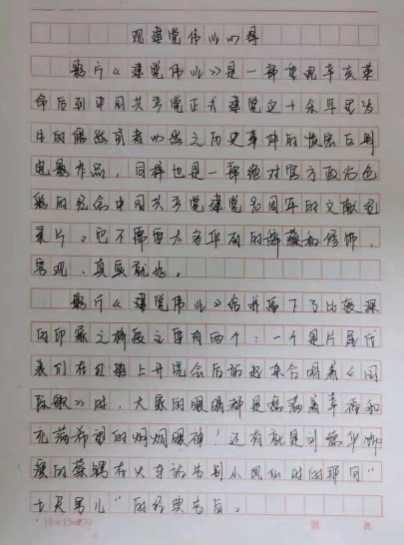 观建党伟业心得
影片《建党伟业》是一部重现辛亥革
命后到中国共产党正式建党之十余年里发
生的偶然或者必然之历史事件的恢宏巨制
电影作品，同样也是一部绝对官方政治色
彩的纪念中国共产党建党90周年的文献纪
录片。它不需要太多华丽的辞藻和修饰，
客观、真实就好。
影片《建党伟业》给我留下了比较深
的印象之桥段主要有两个：一个是片尾代
表们在红船上开完会后的集合唱着《国
际歌》时，大家的眼眶都是噙满着革命和
充满希望的炯炯眼神！还有就是刘德华饰
演的蔡锷在火车站告别小凤仙时的那句“
七尺男儿”的经典古句。
18×15=270
第 页